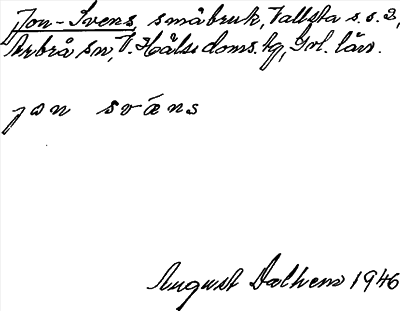 Jon-Svens, småbruk, Vallsta s.s.2,
Arbrå sn, V. Hälsi doms.hg, Gvl. län.
jon sváens
August Dalhem 1946